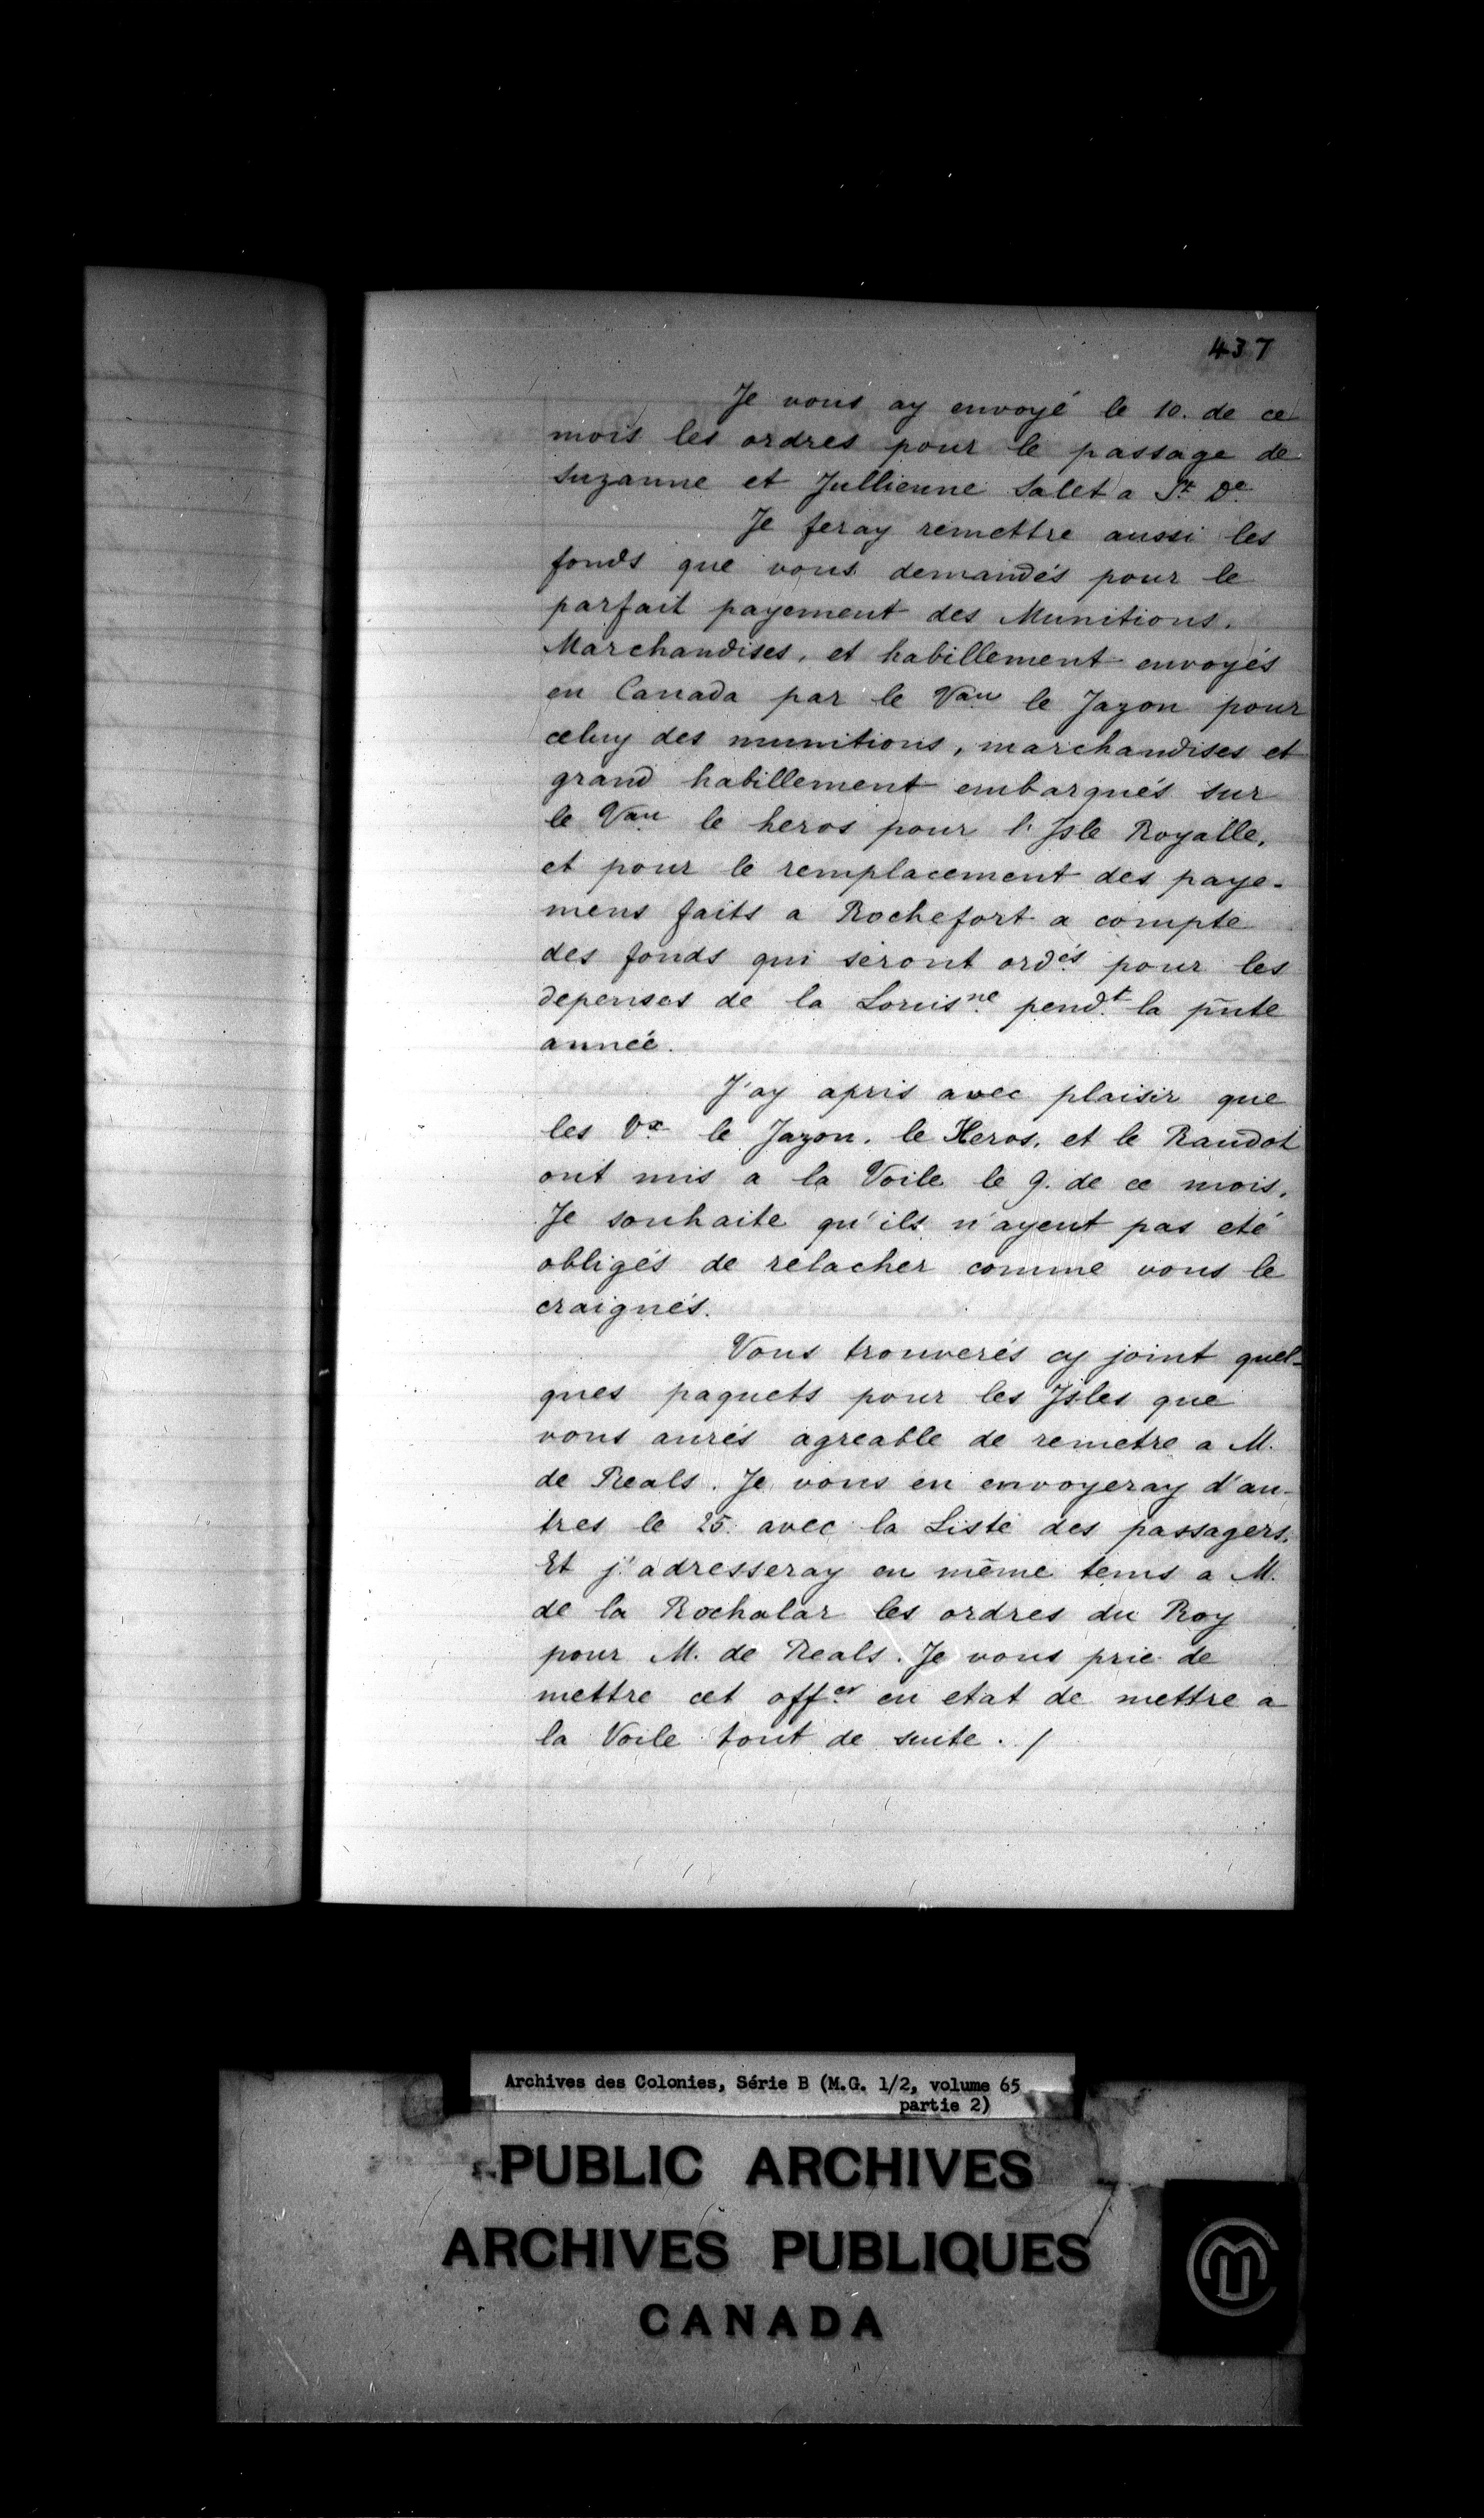 437
Je vous ay envoyé le 10. de ce
mois les ordres pour le passage de
Suzanne et Jullienne Salet a St. De.
Je feray remettre aussi les
fonds que vous demandés pour le
parfait payement des Munitions,
Marchandises, et habillement envoyés
en Canada par le Vau le Jazon pour
celuy des munitions, marchandises et
grand habillement embarqués sur
le Vau le heros pour l'Isle Royalle,
et pour le remplacement des paye-
mens faits a Rochefort a compte
des fonds qui seront ordés pour les
depenses de la Louisne pendt la pnte
année.
J'ay apris avec plaisir que
les Vx le Jazon, le Heros, et le Raudot
ont mis a la Voile le 9. de ce mois,
Je souhaite qu'ils n'ayent pas eté
obligés de relacher comme vous le
craignés.
Vous trouverés cy joint quel-
ques paquets pour les Isles que
vous aurés agreable de remetre a M.
de Reals. Je vous en envoyeray d'au-
tres le 25. avec la Liste des passagers.
Et j'adresseray en même tems a M.
de la Rochalar les ordres du Roy
pour M. de Reals. Je vous prie de
mettre cet offer en etat de mettre a
la Voile tout de suite. /
Archives des Colonies, Série B (M.G. 1/2, volume 65
partie 2)
PUBLIC ARCHIVES
ARCHIVES PUBLIQUES
CANADA